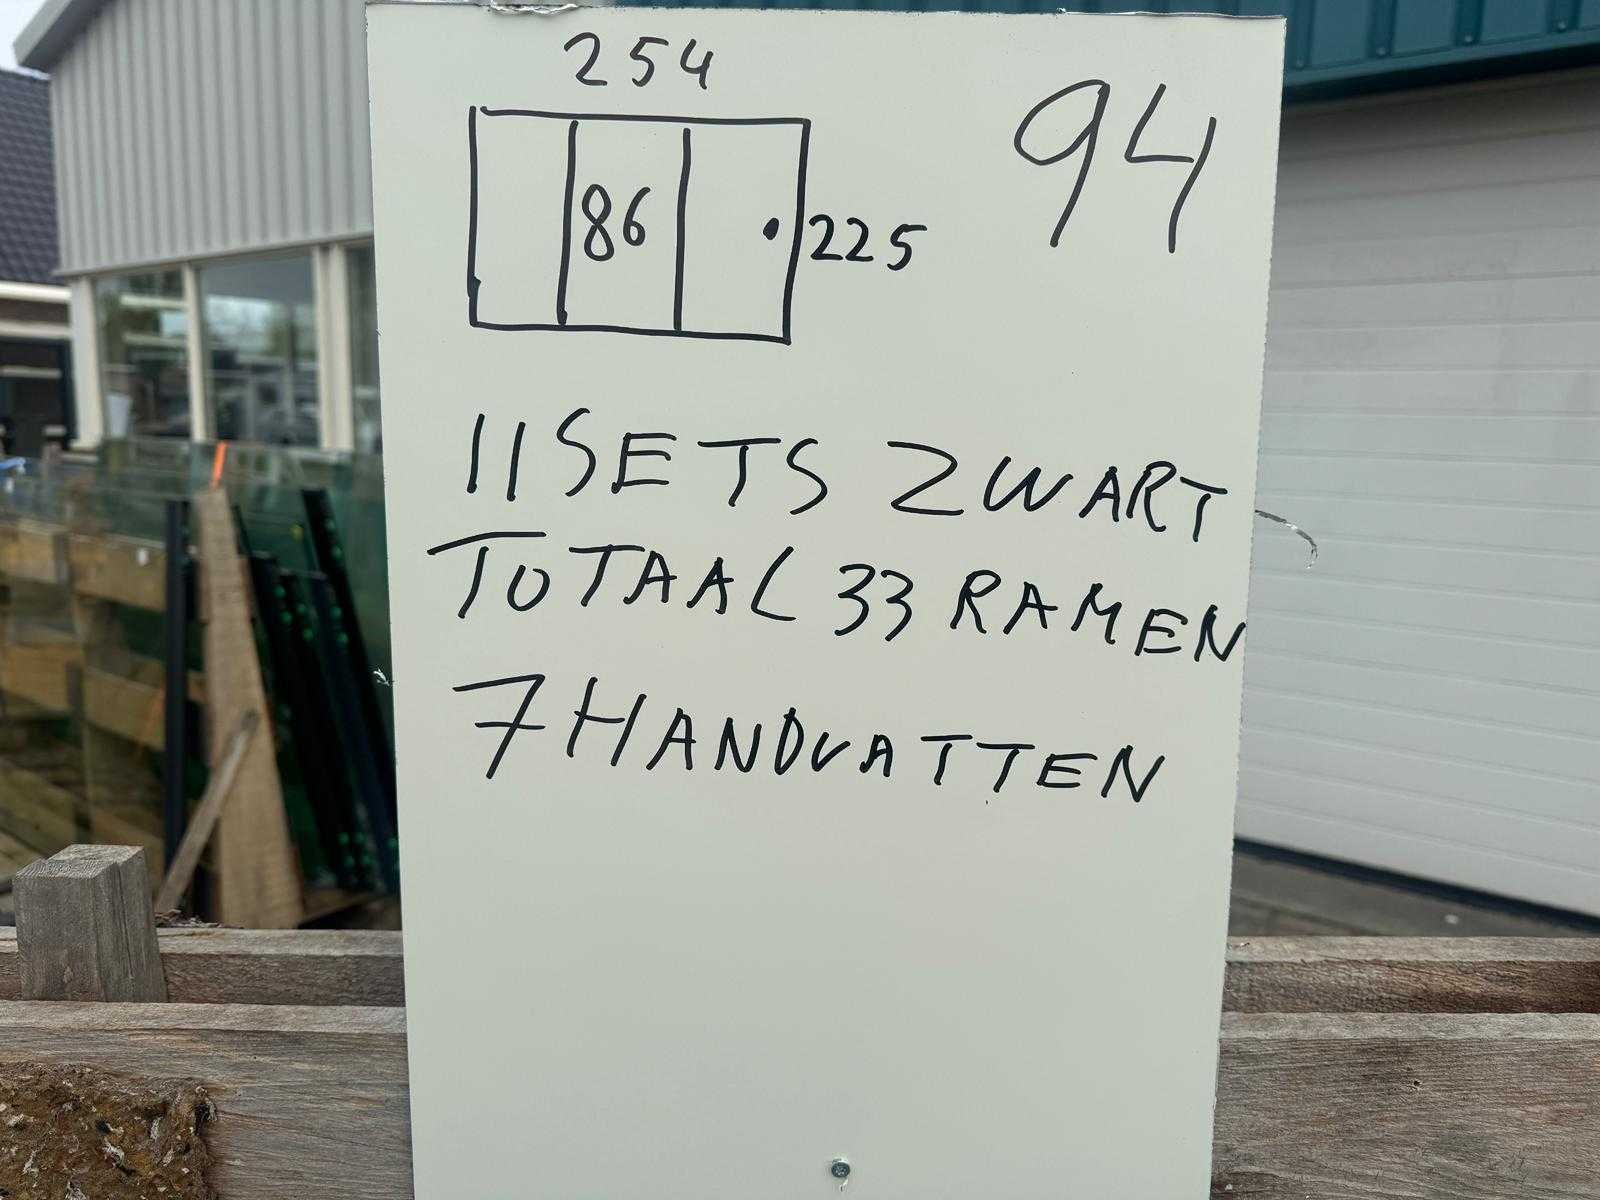 254
94
86
225
11 SETS ZWART
TOTAAL 33 RAMEN
7 HANDVATTEN